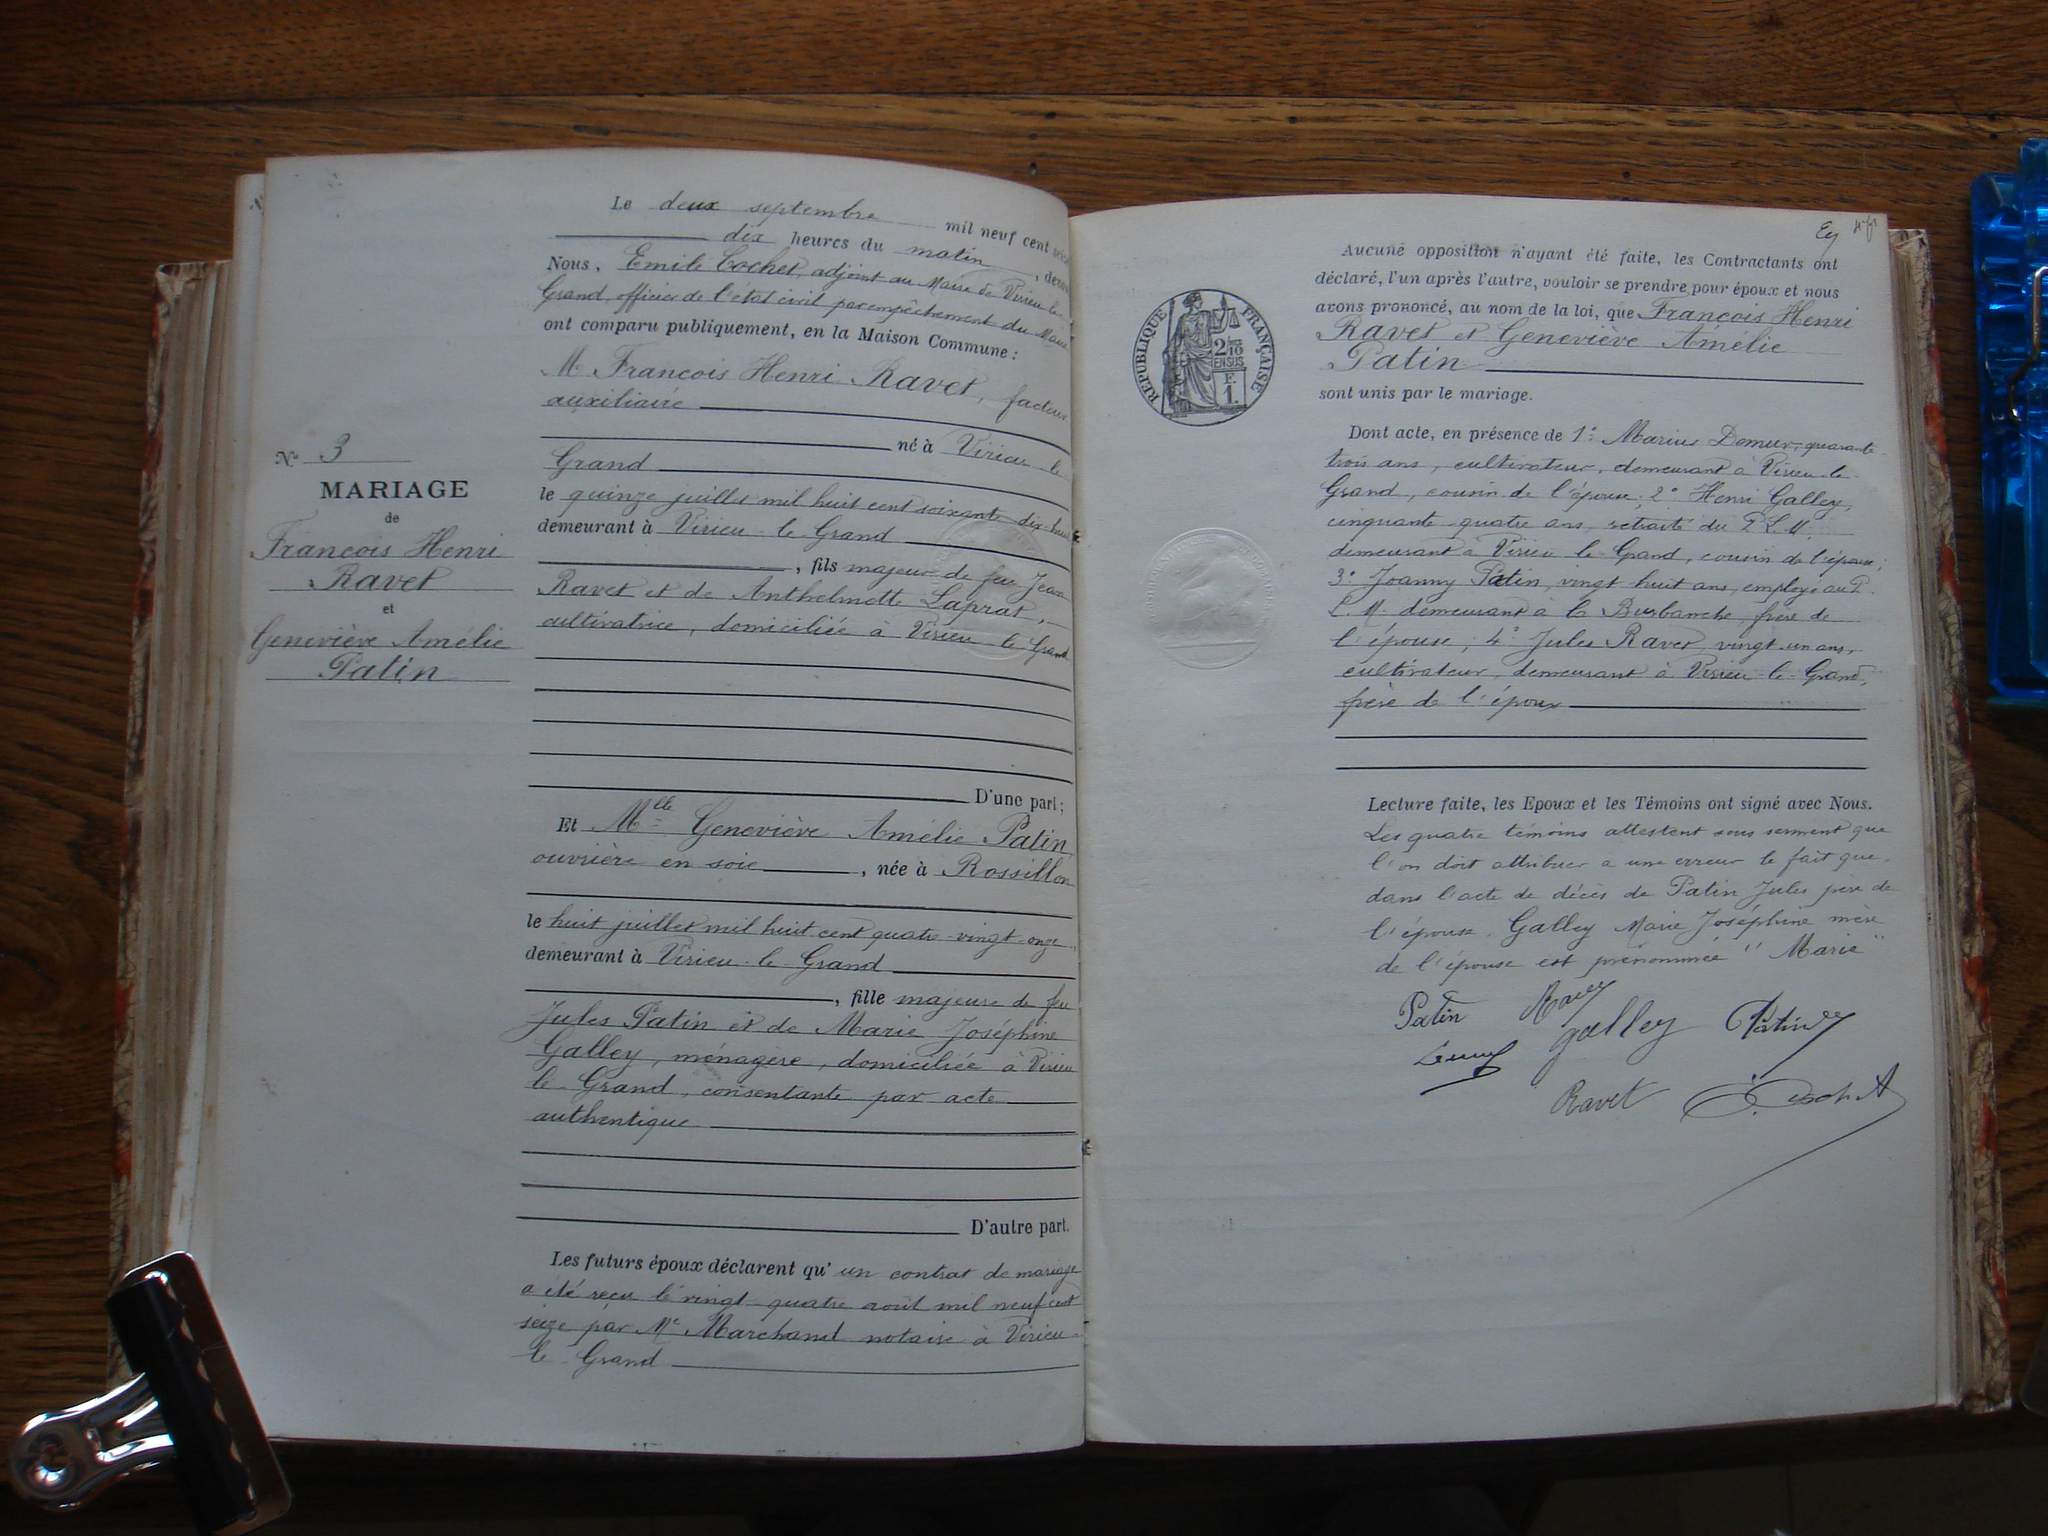 Le deux septembre mil neuf cent seize
dix heures du matin, devant
Nous, Emile Cochet, adjoint au Maire de Virieu-le-
Grand, officier de l'état civil par empêchement du Maire
ont comparu publiquement, en la Maison Commune :
M. François Henri Ravet, facteur
auxiliaire
né à Virieu-le-
Grand
le quinze juillet mil huit cent soixante-dix-huit
demeurant à Virieu-le-Grand
, fils majeur de feu Jean
Ravet et de Anthelmette Laprat,
cultivatrice, domiciliée à Virieu-le-Grand
D'une part ;
Et Mlle Geneviève Amélie Patin
ouvrière en soie, née à Rossillon
le huit juillet mil huit cent quatre-vingt-onze,
demeurant à Virieu-le-Grand
, fille majeure de feu
Jules Patin et de Marie Joséphine
Galley, ménagère, domiciliée à Virieu
le-Grand, consentante par acte
authentique
D'autre part.
Les futurs époux déclarent qu'un contrat de mariage
a été reçu le vingt-quatre août mil neuf cent
seize par Me Marchand notaire à Virieu-
le-Grand
No 3
MARIAGE
de
François Henri
Ravet
et
Geneviève Amélie
Patin
REPUBLIQUE FRANÇAISE
2/10
EN SUS
F.
1.
Aucune opposition n'ayant été faite, les Contractants ont
déclaré, l'un après l'autre, vouloir se prendre pour époux et nous
avons prononcé, au nom de la loi, que François Henri
Ravet et Geneviève Amélie
Patin
sont unis par le mariage.
Dont acte, en présence de 1° Marius Demur, quarante-
trois ans, cultivateur, demeurant à Virieu-le-
Grand, cousin de l'épouse; 2° Henri Galley,
cinquante-quatre ans, retraité du P.L.M.
demeurant à Virieu-le-Grand, cousin de l'épouse;
3° Joanny Patin, vingt-huit ans, employé au P.
L.M. demeurant à la Burbanche, frère de
l'épouse; 4° Jules Ravet, vingt-un ans,
cultivateur, demeurant à Virieu-le-Grand,
frère de l'époux
Lecture faite, les Epoux et les Témoins ont signé avec Nous.
Les quatre témoins attestent sous serment que
l'on doit attribuer à une erreur le fait que
dans l'acte de décès de Patin Jules père de
l'épouse, Galley Marie Joséphine mère
de l'épouse est prénommée "Marie"
Patin Ravet Galley Patin
Demur
Ravet E. Cochet